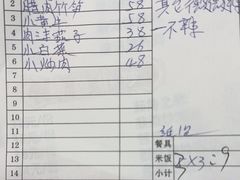 2 腊肉竹笋 58
3 小黄牛 58
4 肉沫茄子 38
5 小白菜 26
6 小炒肉 48
7
8
9
10
11
12 餐具
13 米饭 3×3=9
14 小计
一不辣